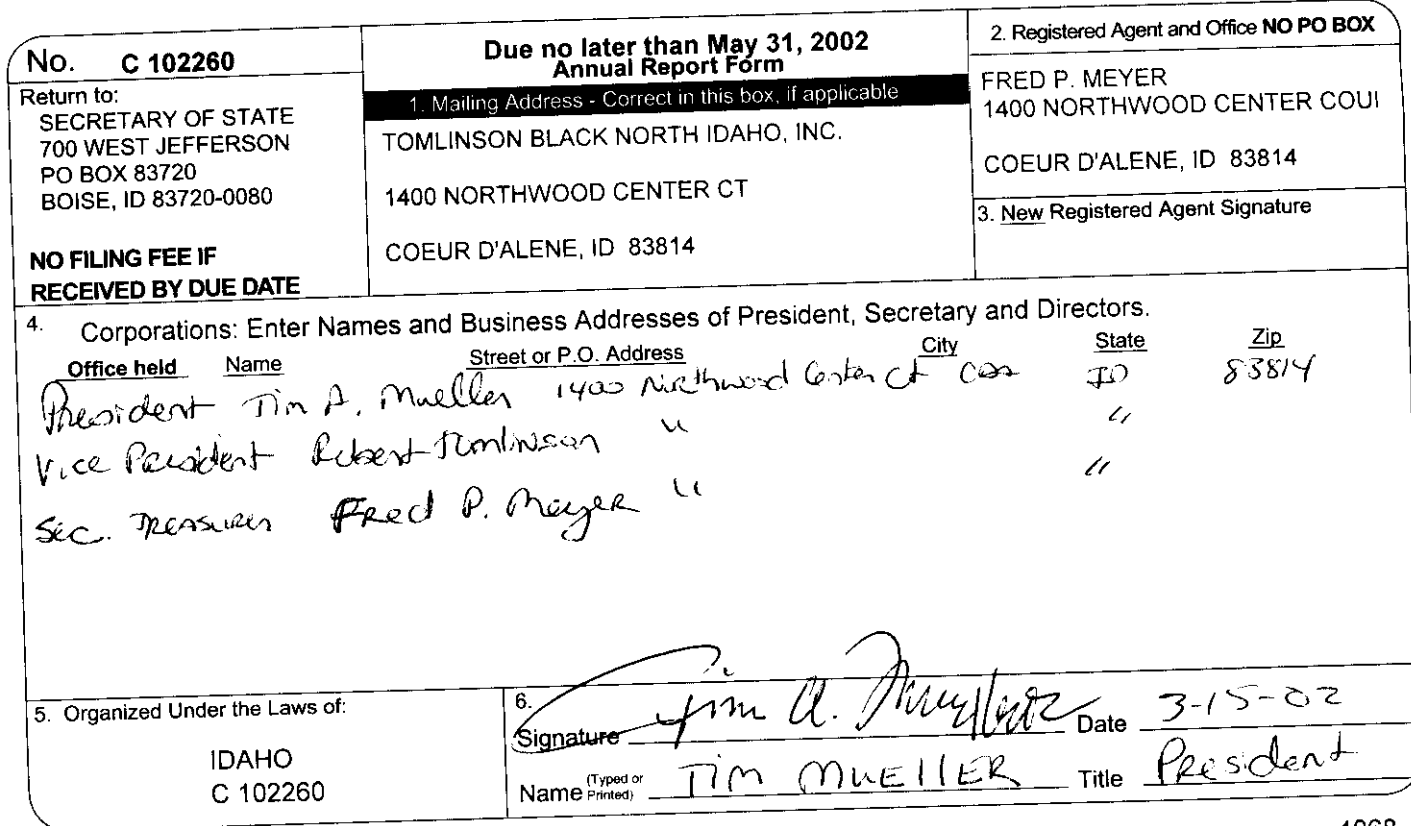 No. C 102260
Return to:
SECRETARY OF STATE
700 WEST JEFFERSON
PO BOX 83720
BOISE, ID 83720-0080
NO FILING FEE IF
RECEIVED BY DUE DATE
Due no later than May 31, 2002
Annual Report Form
1. Mailing Address - Correct in this box, if applicable
TOMLINSON BLACK NORTH IDAHO, INC.
1400 NORTHWOOD CENTER CT
COEUR D'ALENE, ID 83814
2. Registered Agent and Office NO PO BOX
FRED P. MEYER
1400 NORTHWOOD CENTER COUI
COEUR D'ALENE, ID 83814
3. New Registered Agent Signature
4. Corporations: Enter Names and Business Addresses of President, Secretary and Directors.
Office held Name Street or P.O. Address City State Zip
President Tim A. Mueller 1400 Northwood Center Ct ID 83814
Vice President Robert Tomlinson " "
Sec. Treasurer Fred P. Meyer " "
5. Organized Under the Laws of:
IDAHO
C 102260
6.
Signature Tim A. Mueller Date 3-15-02
Name (Typed or Printed) TIM MUEllER Title President